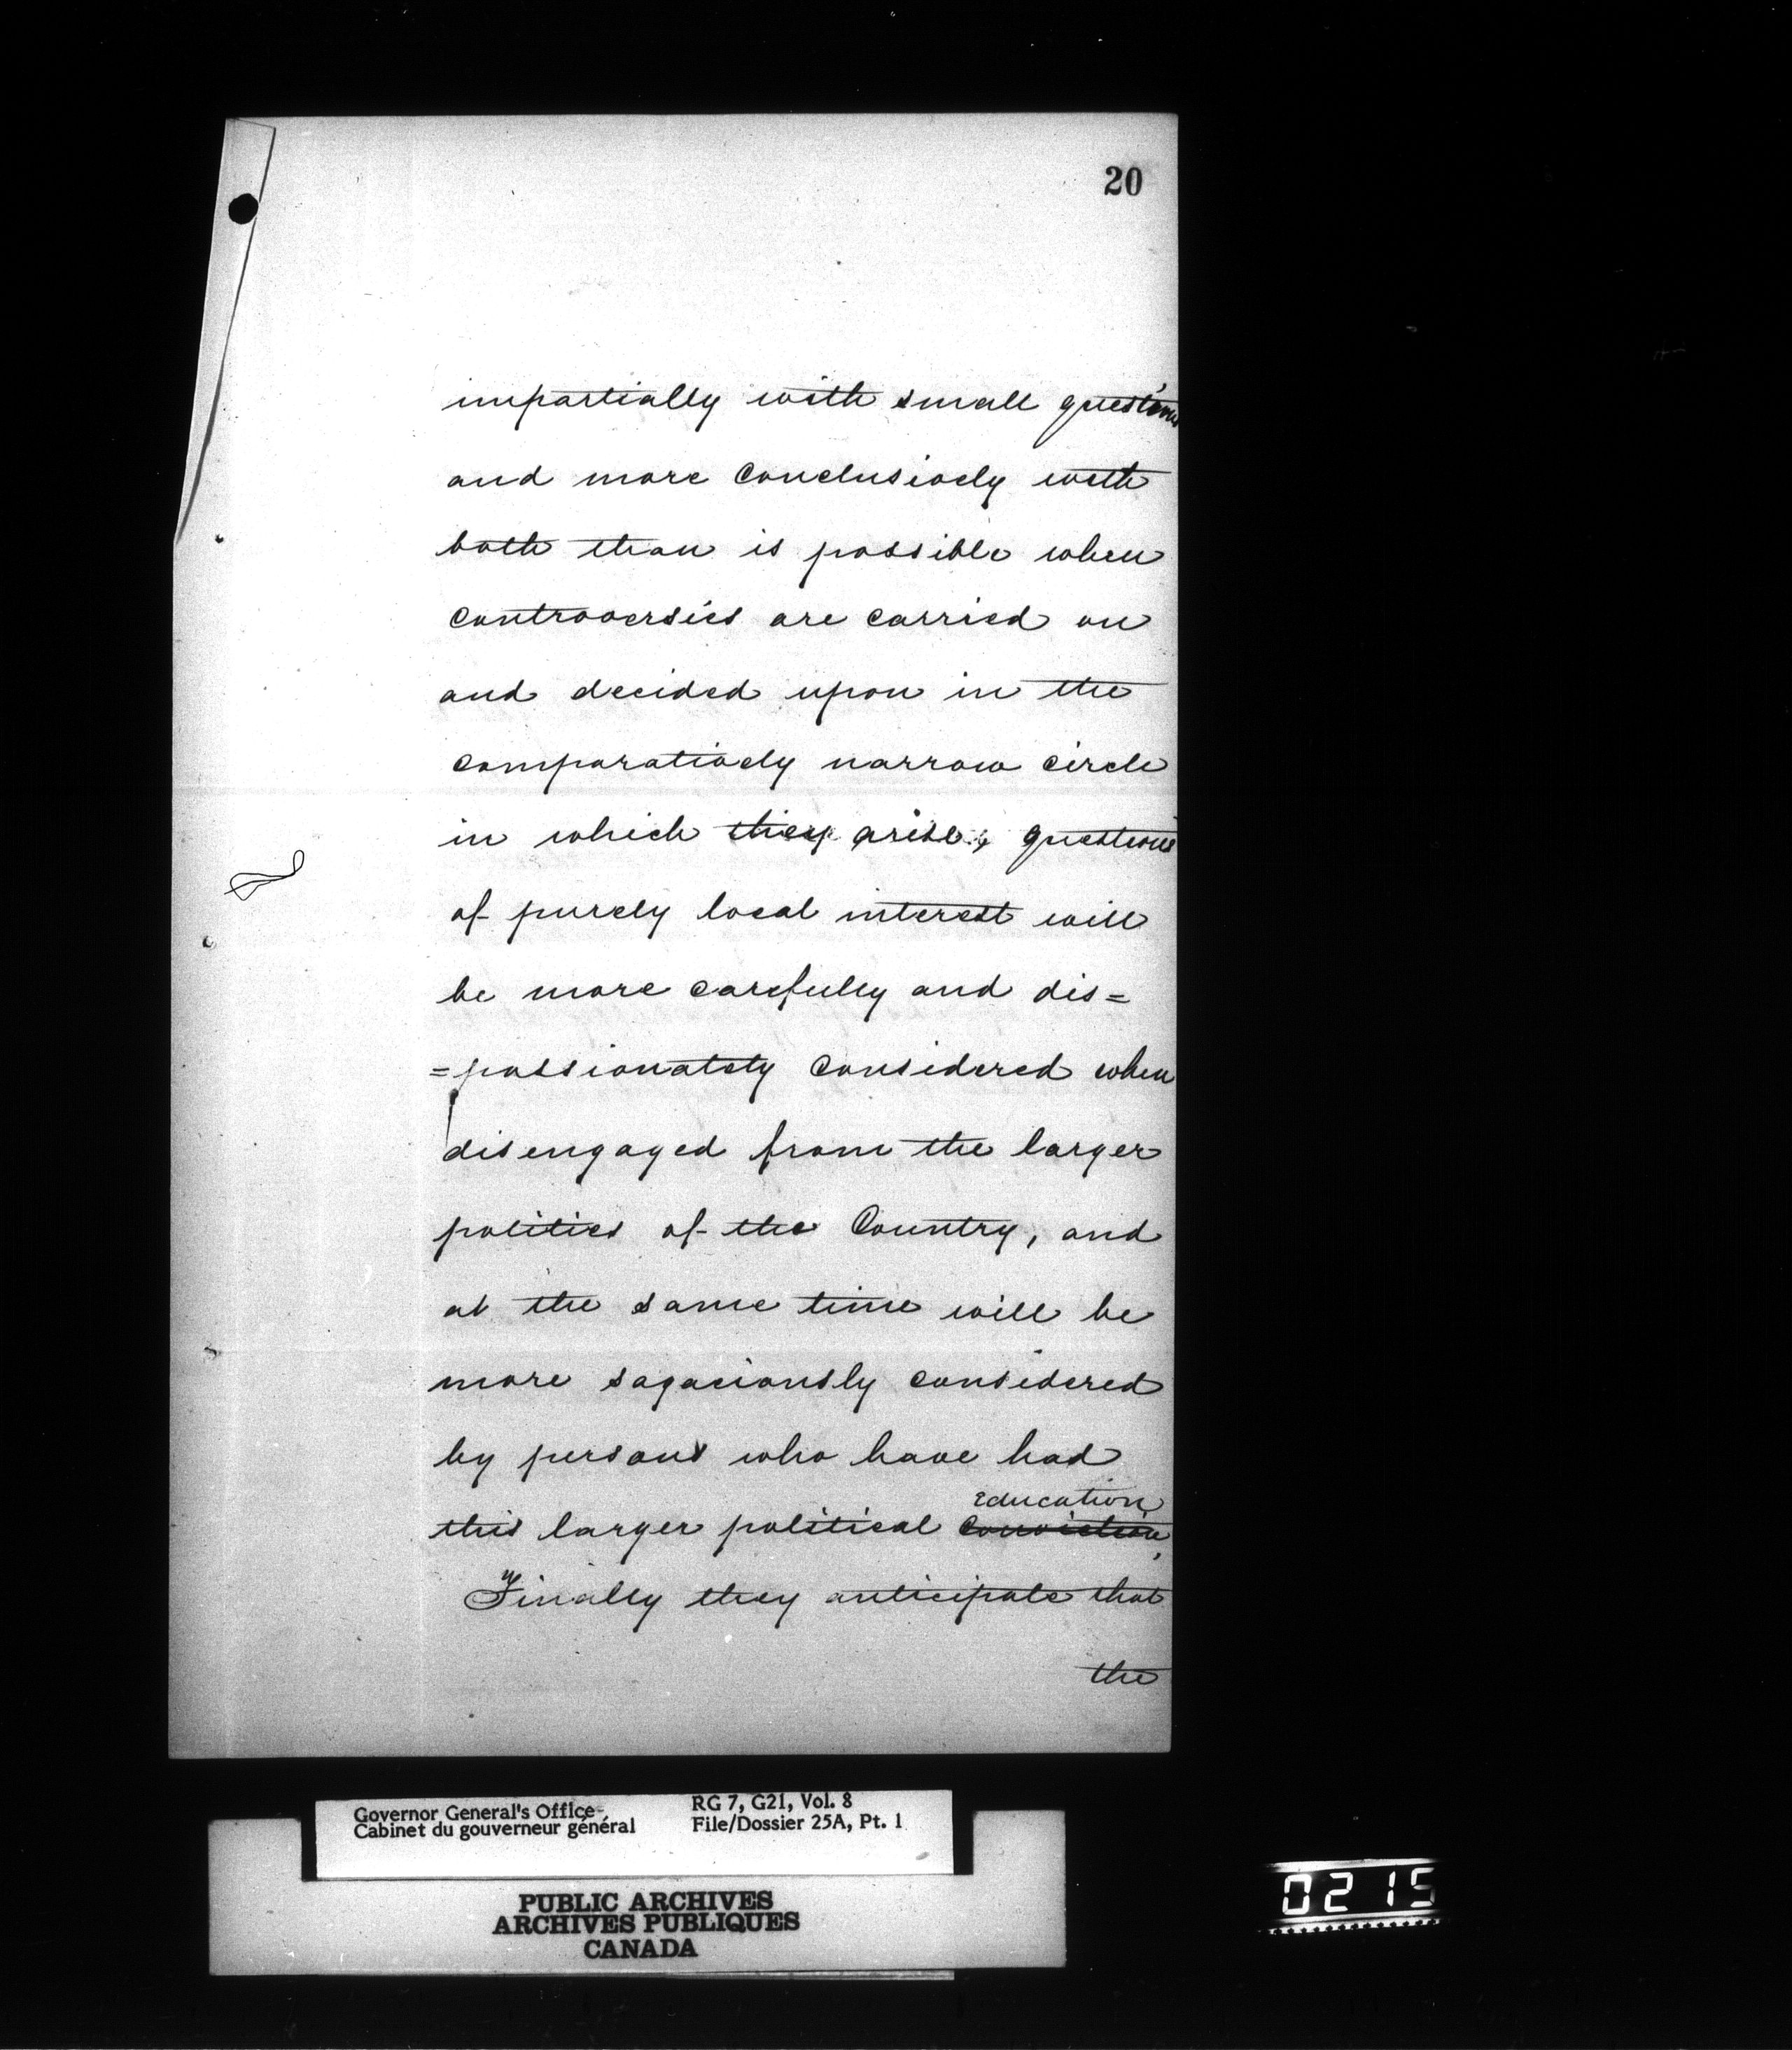 20
impartially with small questions
and more conclusively with
both than is possible when
controversies are carried on
and decided upon in the
comparatively narrow circle
in which they arise; questions
of purely local interest will
be more carefully and dis=
=passionately considered when
disengaged from the larger
politics of the Country, and
at the same time will be
more sagaciously considered
by persons who have had
Education
this larger political Conviction,
Finally they anticipate that
the
Governor General's Office
Cabinet du gouverneur général
RG 7, G21, Vol. 8
File/Dossier 25A, Pt. 1
PUBLIC ARCHIVES
ARCHIVES PUBLIQUES
CANADA
0215